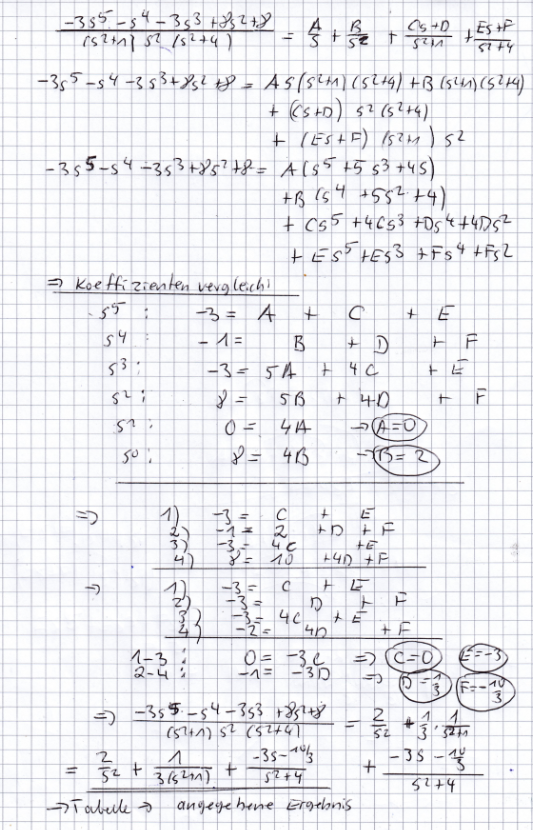 (-3s⁵ - s⁴ - 3s³ + 8s² + 8) / ((s²+1) s² (s²+4)) = A/s + B/s² + (Cs+D)/(s²+1) + (Es+F)/(s²+4)
-3s⁵ - s⁴ - 3s³ + 8s² + 8 = A s (s²+1) (s²+4) + B (s²+1) (s²+4)
+ (Cs+D) s² (s²+4)
+ (Es+F) (s²+1) s²
-3s⁵ - s⁴ - 3s³ + 8s² + 8 = A (s⁵ + 5s³ + 4s)
+B (s⁴ + 5s² + 4)
+ Cs⁵ + 4Cs³ + Ds⁴ + 4Ds²
+ Es⁵ + Es³ + Fs⁴ + Fs²
⇒ Koeffizientenvergleich:
s⁵: -3 = A + C + E
s⁴: -1 = B + D + F
s³: -3 = 5A + 4C + E
s²: 8 = 5B + 4D + F
s¹: 0 = 4A → A=0
s⁰: 8 = 4B → B=2
⇒ 1) -3 = C + E
2) -1 = 2 + D + F
3) -3 = 4C + E
4) 8 = 10 + 4D + F
→ 1) -3 = C + E
2) -3 = D + F
3) -3 = 4C + E
4) -2 = 4D + F
1-3: 0 = -3C ⇒ C=0 E=-3
2-4: -1 = -3D ⇒ D=1/3 F=-10/3
⇒ (-3s⁵ - s⁴ - 3s³ + 8s² + 8) / ((s²+1) s² (s²+4)) = 2/s² + 1/3 · 1/(s²+1)
= 2/s² + 1/(3(s²+1)) + (-3s - 10/3)/(s²+4) + (-3s - 10/3)/(s²+4)
→ Tabelle → angegebene Ergebnis